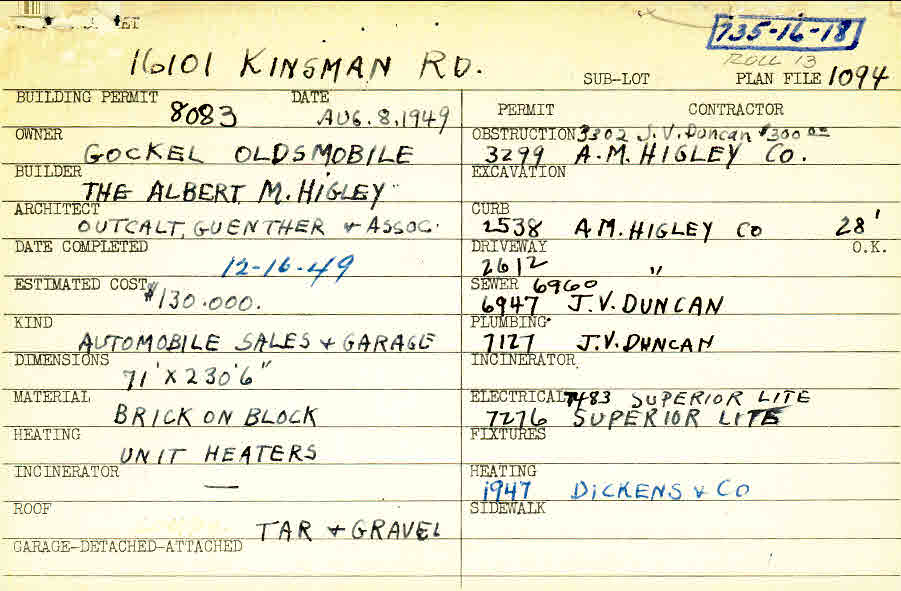 735-16-18
ROLL 13
16101 KINSMAN RD.
SUB-LOT PLAN FILE 1094
BUILDING PERMIT 8083 DATE AUG. 8. 1949
OWNER GOCKEL OLDSMOBILE
BUILDER THE ALBERT M. HIGLEY
ARCHITECT OUTCALT, GUENTHER & ASSOC.
DATE COMPLETED 12-16-49
ESTIMATED COST $130.000.
KIND AUTOMOBILE SALES & GARAGE
DIMENSIONS 71' X 230'6"
MATERIAL BRICK ON BLOCK
HEATING UNIT HEATERS
INCINERATOR —
ROOF TAR & GRAVEL
GARAGE-DETACHED-ATTACHED
PERMIT CONTRACTOR
OBSTRUCTION 3302 J.V. Duncan $300 00
3299 A.M. HIGLEY CO.
EXCAVATION
CURB 2538 A.M. HIGLEY CO 28'
DRIVEWAY O.K.
2612 "
SEWER 6960
6947 J.V. DUNCAN
PLUMBING
7127 J.V. DUNCAN
INCINERATOR
ELECTRICAL 7483 SUPERIOR LITE
7276 SUPERIOR LITE
FIXTURES
HEATING
1947 DICKENS & CO
SIDEWALK